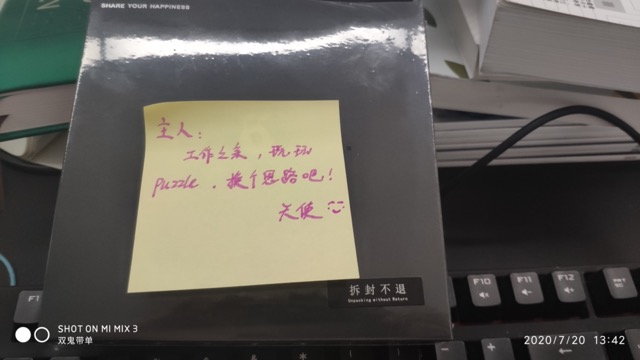 SHARE YOUR HAPPINESS
主人：
工作之余，玩玩
puzzle，换个思路吧！
天使
拆封不退
Unpacking without Return
F10
F11
F12
SHOT ON MI MIX 3
双鬼带单
2020/7/20 13:42